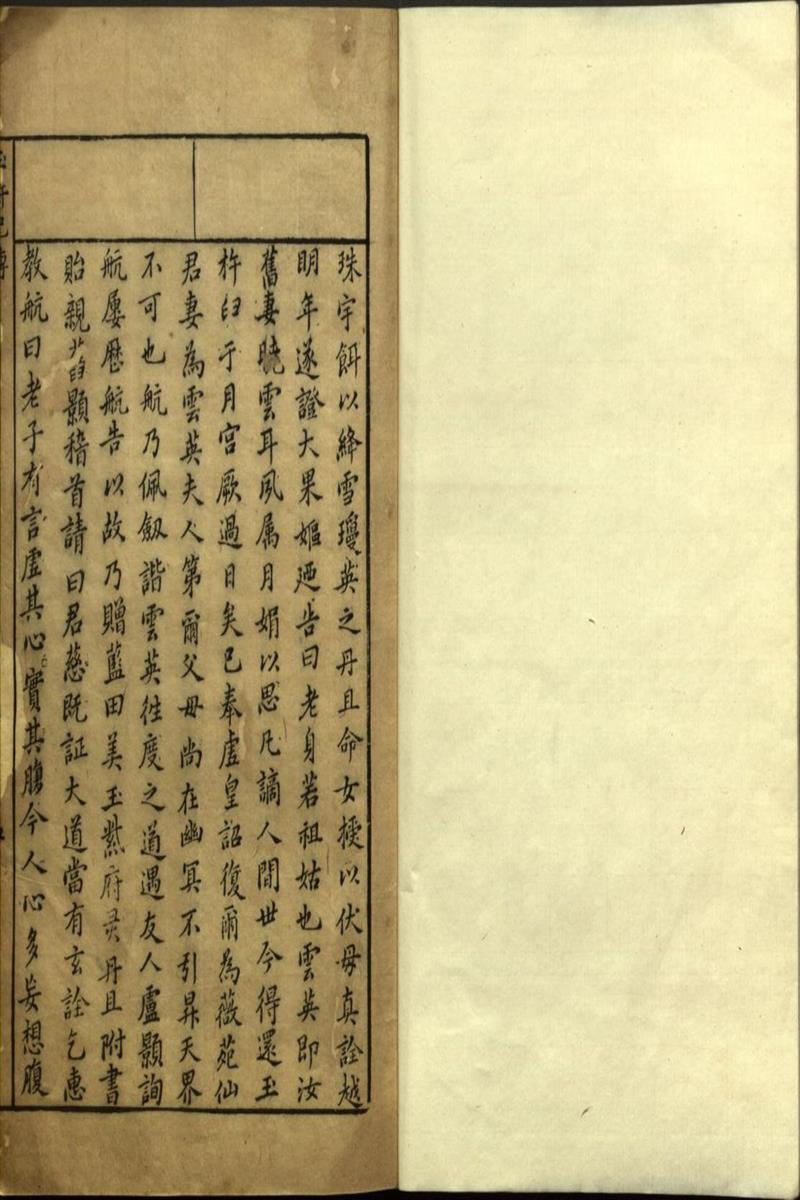 珠宇餌以絳雪瓊英之丹且命女授以伏母真詮越
明年遂證大果嫗迺告曰老身若祖姑也雲英即汝
舊妻曉雲耳夙属月娟以思凡謫人間世今得還玉
杵臼于月宮厥過日矣已奉虛皇詔復爾為薇苑仙
君妻為雲英夫人第爾父母尚在幽冥不引昇天界
不可也航乃佩劔諧雲英徃度之道遇友人盧顥詢
航屢歷航告以故乃贈藍田美玉紫府灵丹且附書
貽親昔顥稽首請曰君慈既証大道當有玄詮乞惠
教航曰老子有言虛其心實其腹今人心多妄想腹